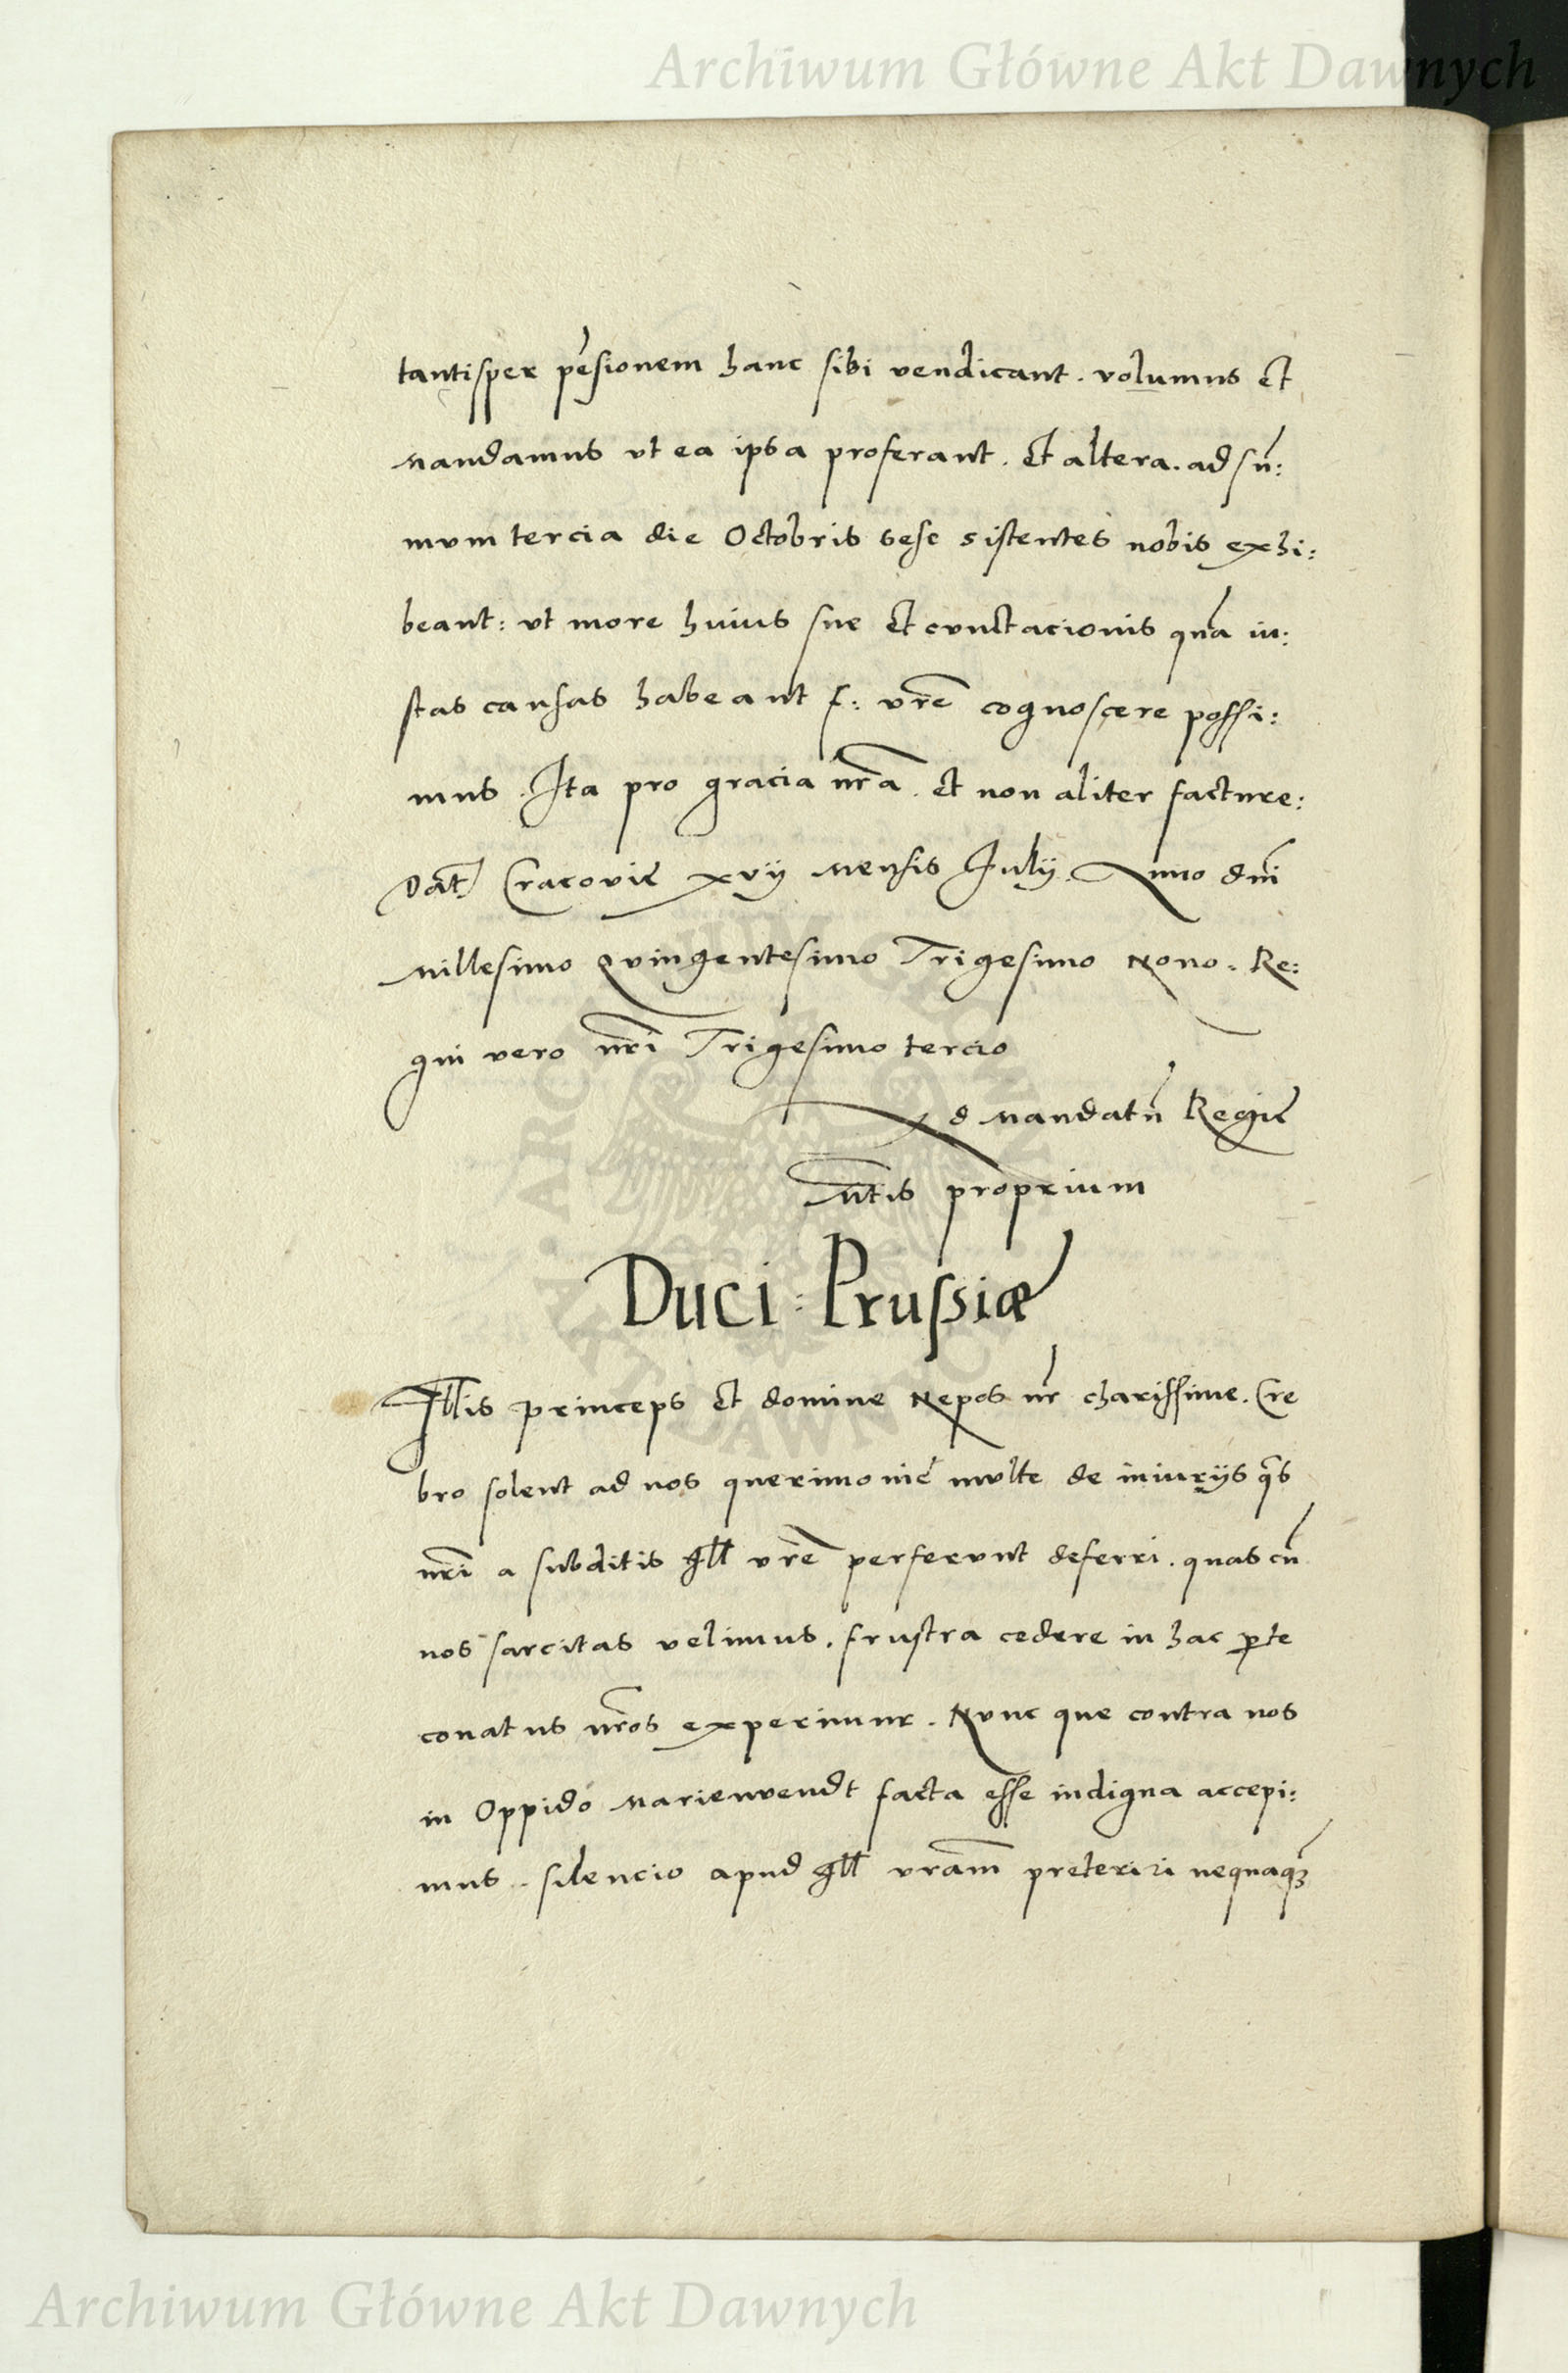 Archiwum Główne Akt Dawnych
tantisper pēsionem hanc sibi vendicant. volumus et
mandamus vt ea ipsa proferant. Et altera. ad sū:
mum tercia die Octobris sese sistentes nobis exhi:
beant: vt more huius sue et cunctacionis quā iu:
stas causas habeant f: vr̄e cognoscere possi:
mus. Ita pro gracia nr̄a. et non aliter facture:
Dat̄ Cracovie xvij mensis Julij. Anno dnī
Millesimo Quingentesimo Trigesimo Nono. Re:
gni vero nr̄i Trigesimo tercio
Ad mandatū Regie
Mtis proprium
Duci: Prussiæ
Illis princeps et domine Nepos nr̄ charissime. Cre
bro solent ad nos querimonie multe de iniurijs qās
nr̄i a subditis Ill vr̄e perferunt deferri. quas cū
nos sarcitas velimus. frustra cedere in hac ꝑte
conatus nr̄os experimur. Nunc que contra nos
in Oppido Marienvendt facta esse indigna accepi:
mus. silencio apud Ill vram̄ preteriri nequaqȝ
Archiwum Główne Akt Dawnych